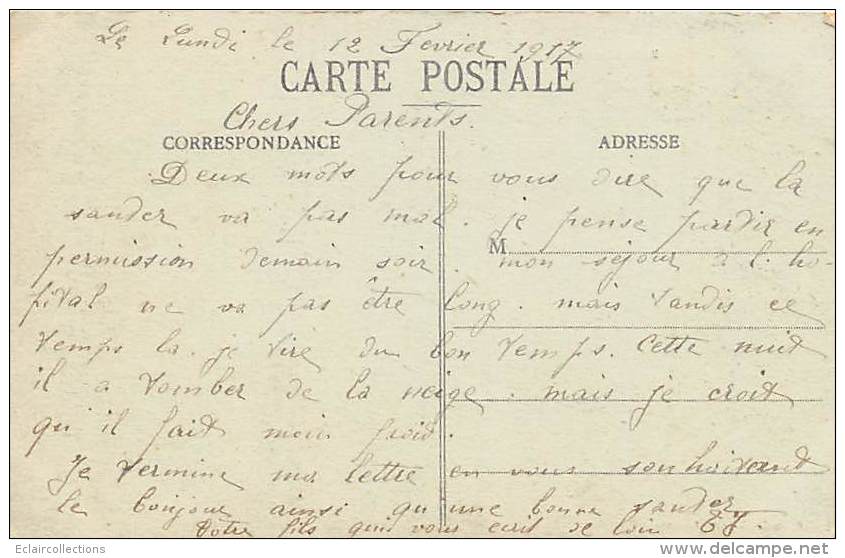 Le Lundi le 12 Fevrier 1917
CARTE POSTALE
Chers Parents.
CORRESPONDANCE
ADRESSE
Deux mots pour vous dire que la
sander va pas mal. je pense partir en
M
permission demain soir. mon séjour a l. ho-
pital ne va pas être long. mais tandis ce
temps la. je tire du bon temps. Cette nuit
il a tomber de la neige. mais je croit
qu'il fait moin froid.
Je termine ma lettre en vous souhaitant
le bonjour ainsi qu'une bonne sander
Votre fils qui vous ecrit de loin
Eclaircollections
www.delcampe.net